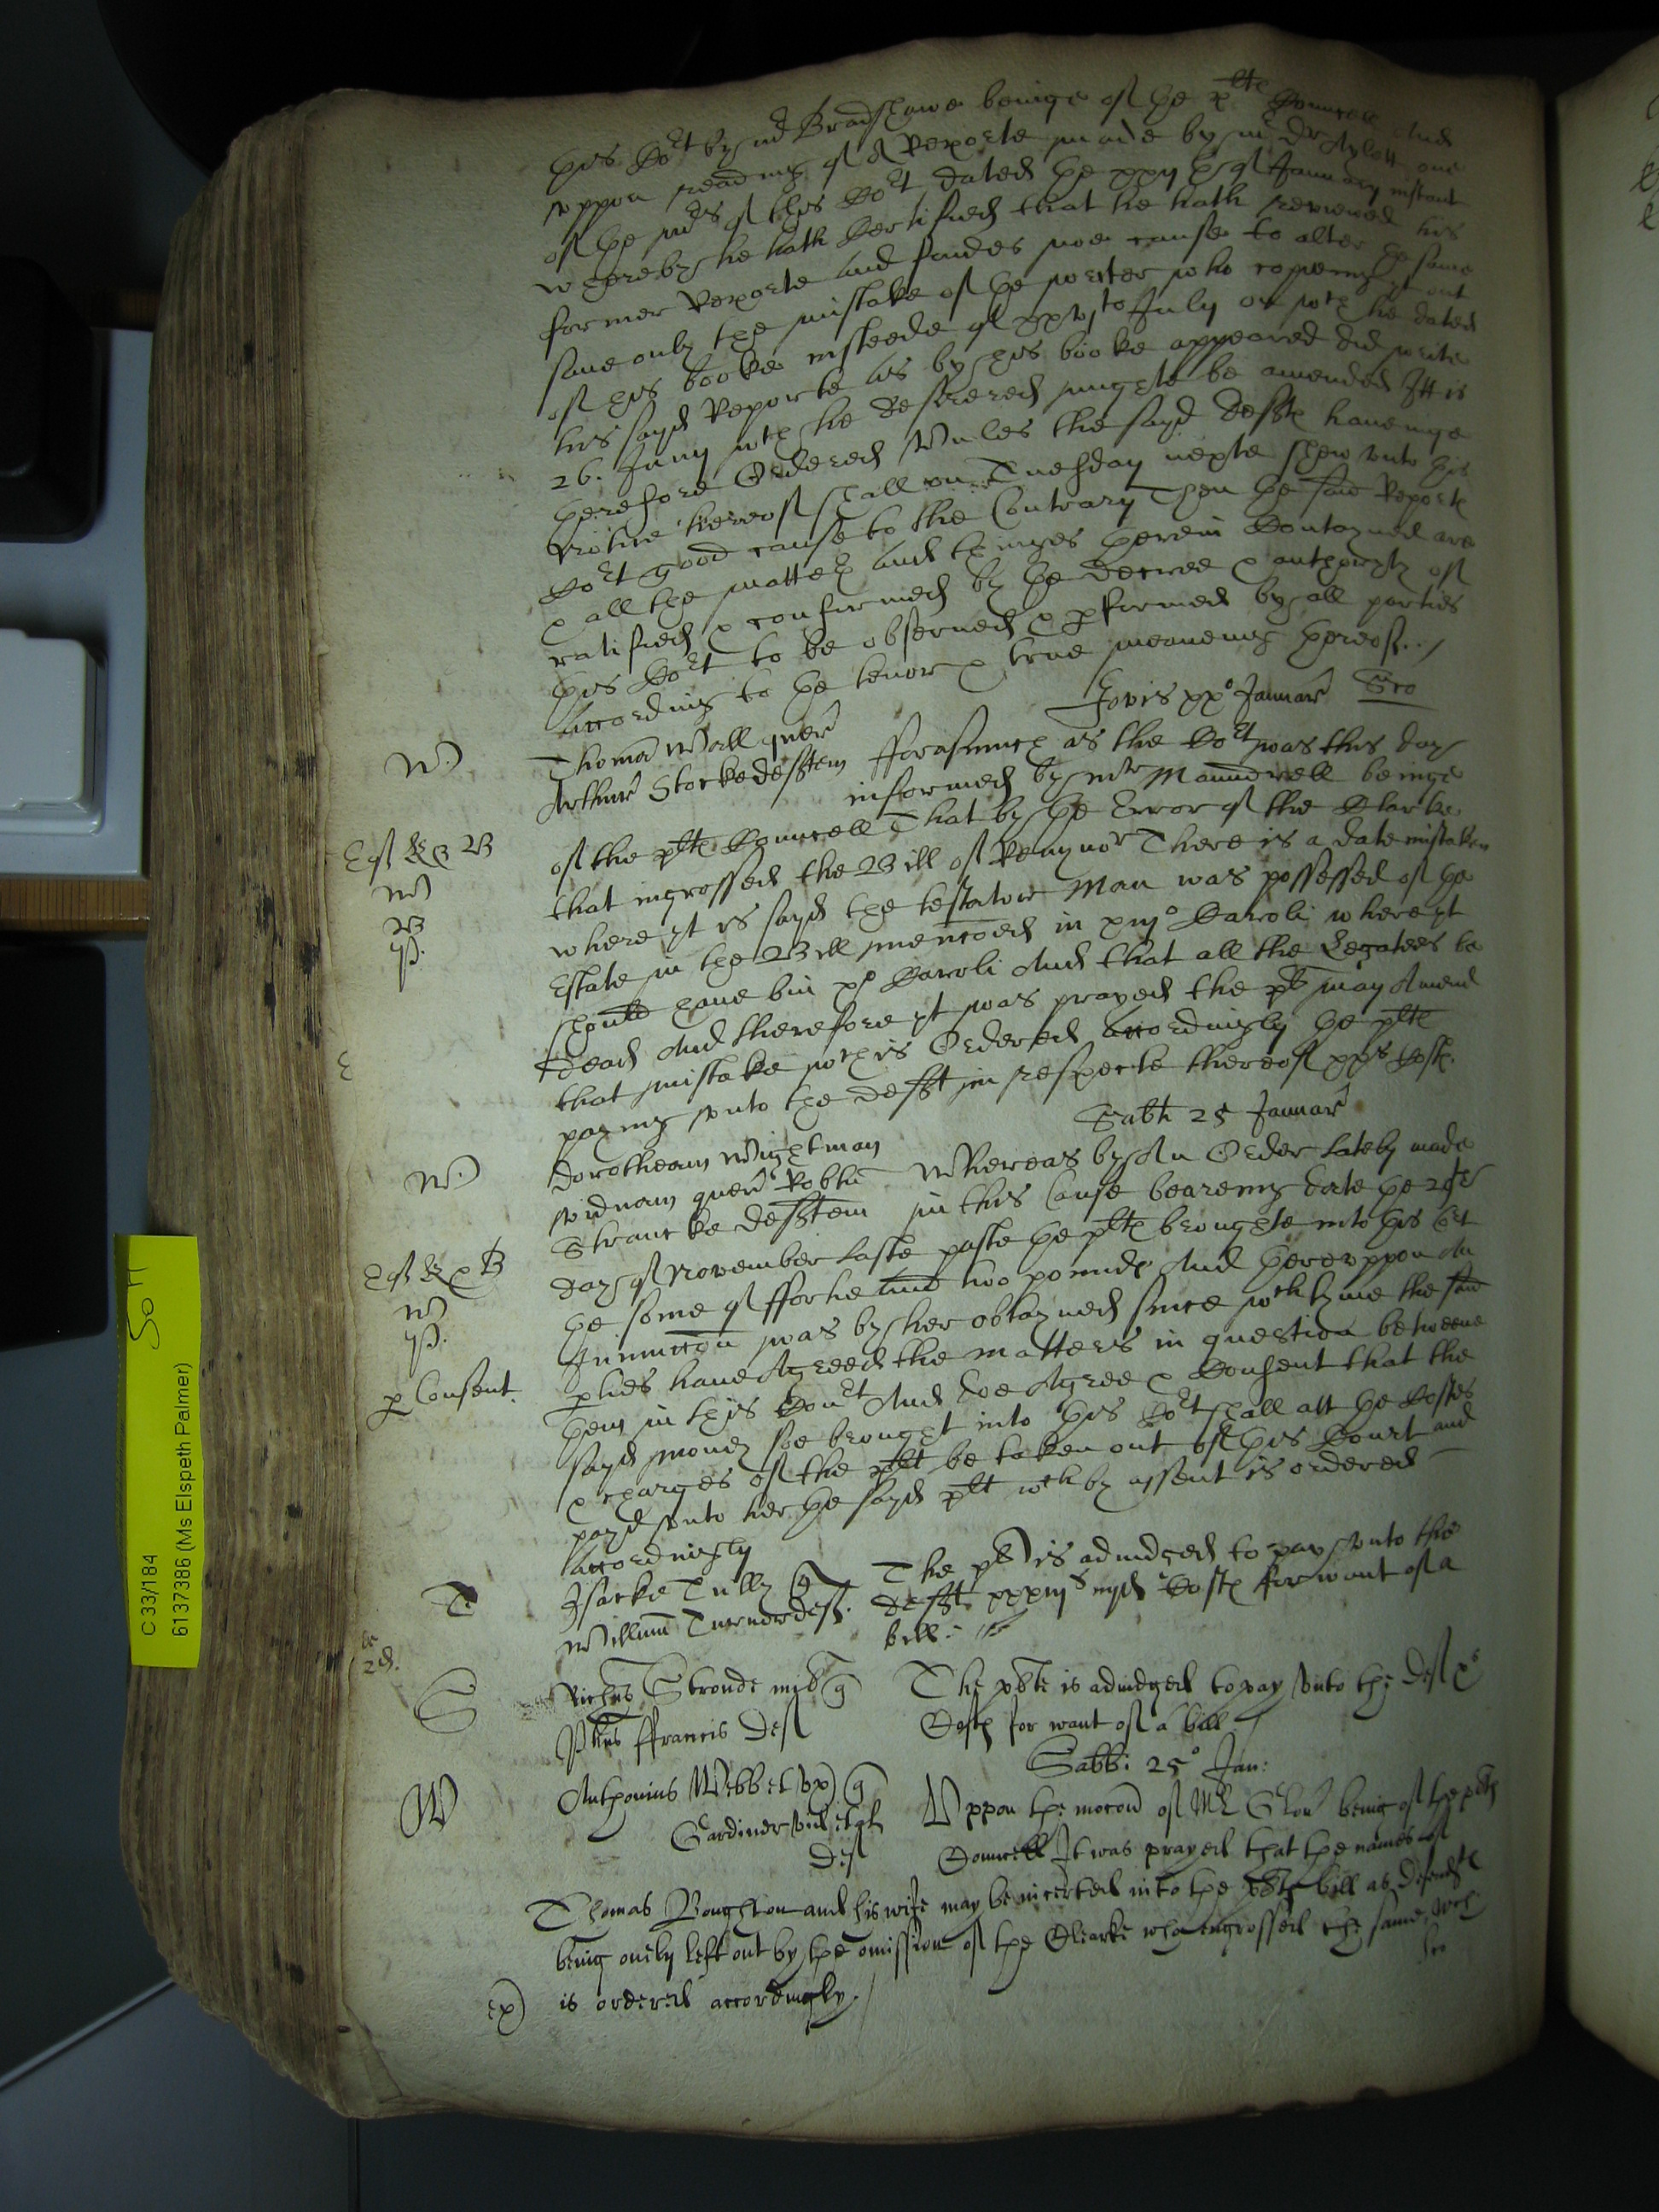 this Cort by mr Bradshawe beinge of the plts Councell And
vppon reading of A Reporte made by mr Dr Aylett one
of the mrs of this Cort dated the xxijth of January instant
whereby he hath Certified that he hath reviewed his
former Reporte and findes noe cause to alter the same
saue only the mistake of the writer who copyeing yt out
of his booke insteede of xxvjto July on wch he dated
his sayd Reporte as by his booke appeared did write
26. Juny wch he desiered mighte be amended Itt is
therefore Ordered Vnles the sayd defts haueinge
notice thereof shall on Tuesday nexte shew vnto this
Cort good cause to the Contrary Then the said Reporte
& all the matters and thinges therein Contayned are
ratified & confirmed by the decree & authority of
this Cort to be observed & pformed by all parties
According to the tenor & true meaneing thereof./
Jovis xxo Januar
W
Thomas Wall quer
Arthur Stocke defftem fforasmuch as the Cort was this day
informed by mr Maundrell beinge
of the plts Councell That by the Error of the Clarke
that ingrossed the Bill of Revyuor There is a date mistaken
where yt is sayd the testator Man was possessed of the
Estate in the Bill menconed in xiijo Caroli where yt
should haue bin xo Caroli And that all the Legatees be
dead And therefore yt was prayed the plt may Amend
that mistake wch is Ordered accordingly the plt
paying vnto the defft in respecte thereof xxs Costs.
Sabti 25 Januar
W
Dorotheam Wightman
viduam quer Robtu Whereas by An Order lately made
Strancke defftem in this Cause beareing date the 29th
day of November laste paste the plt broughte into this Cort
the some of ffortie and two pounds And therevppon An
Iniunccon was by her obtayned since wch tyme the said
pties haue Agreed the matters in question betweene
p Consent.
them in this Court And doe Agree & Consent that the
sayd money soe brought into this Cort shall att the Costes
& charges of the plt be taken out of this Court and
payd vnto her the sayd plt wch by assent is ordered
Accordingly
T
Isacke Tully q The plt is adiudged to pay vnto the
Willimu Turnor def. defft xxxiijs iiijd Costs for want of a
bill.
S
Richus Stroude mil q The plte is adiudged to pay vnto the def
ffrancis Def Costs for want of a bill
Sabbi 25o Jan:
W
Anthonius Webb et vx q Vppon the mocon of Mr being of the plts
Gardiner vid et al Councell It was prayed that the names of
Def
Thomas Boughton and his wife may be incerted into the plts bill as defendts
being onely left out by the omission of the Clearke who engrossed the same, wch
is ordered accordingly./
C 33/184
6137386 (Ms Elspeth Palmer)